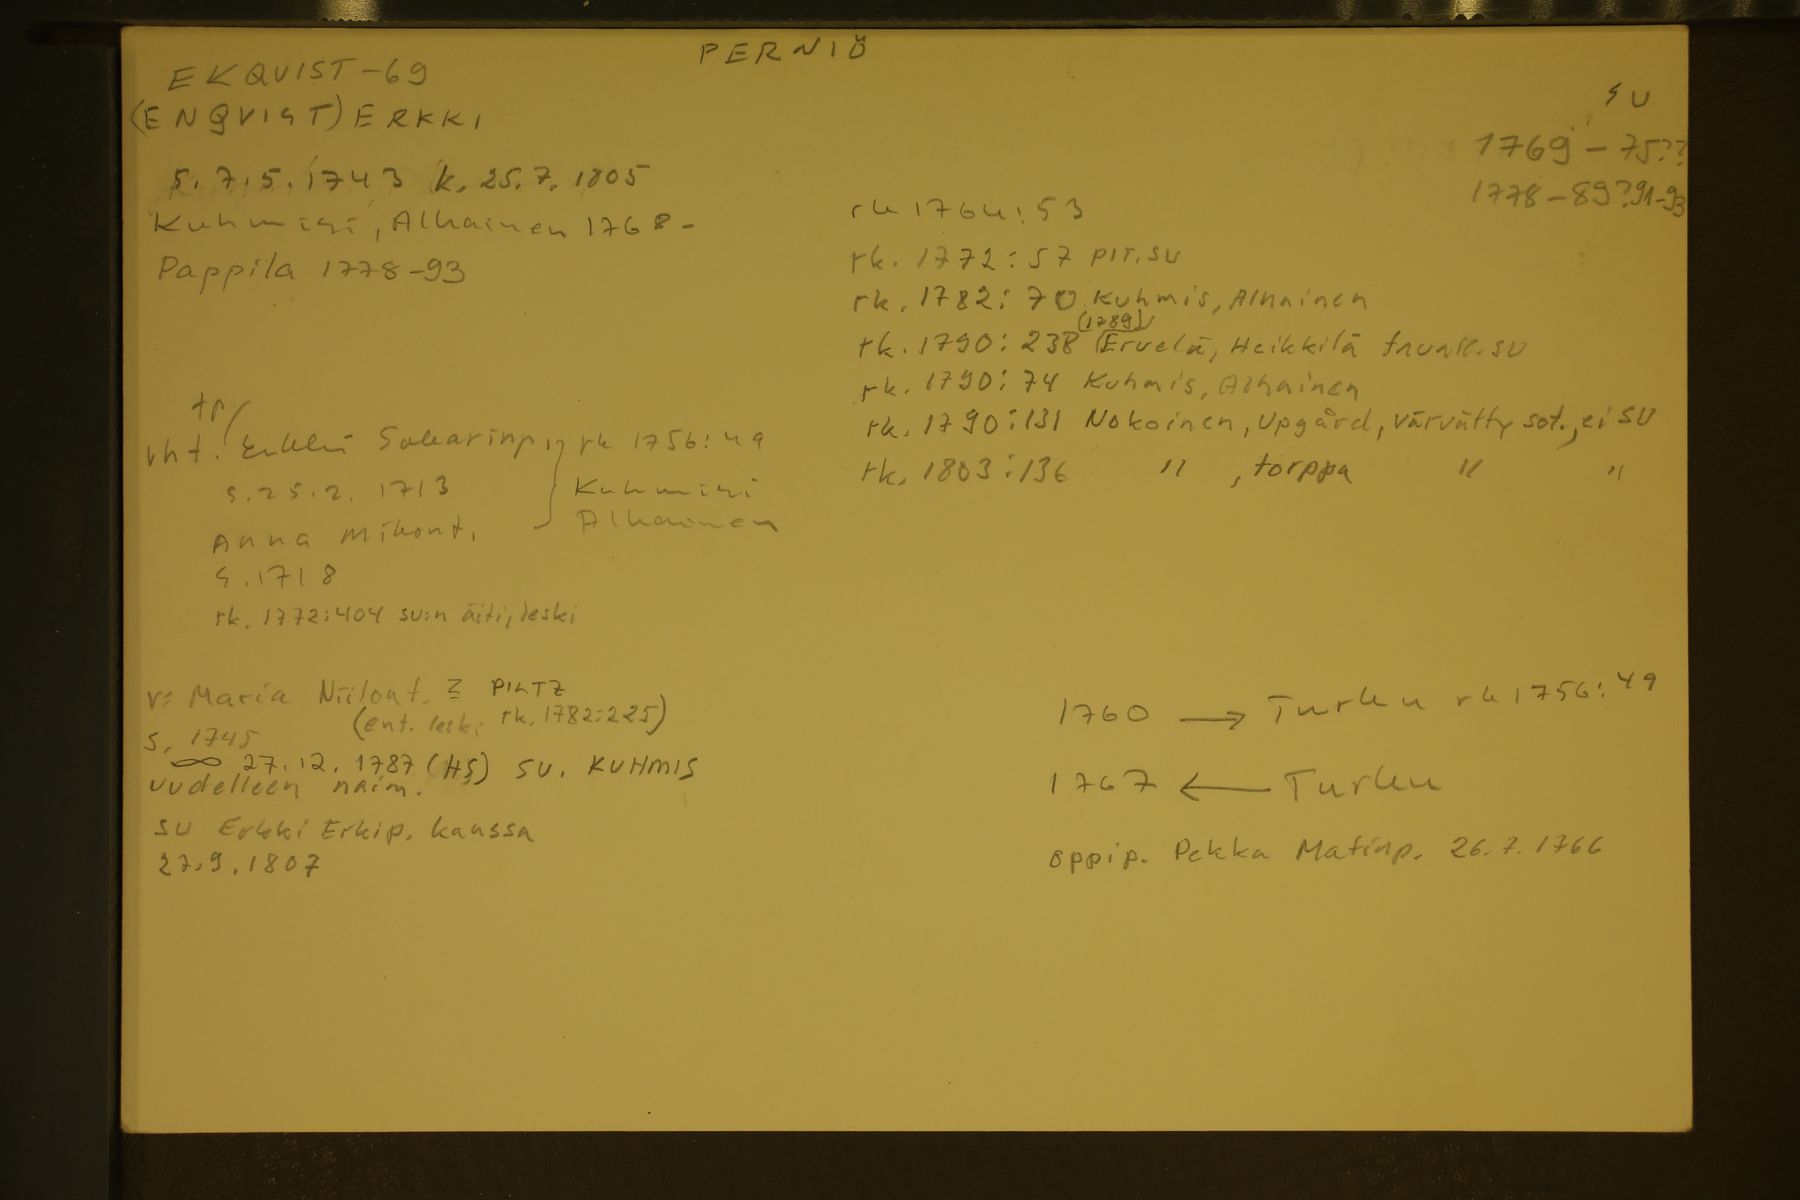 PERNIÖ
EKQVIST-69
(ENQVIST) ERKKI
SU
1769 - 75??
1778-89?91-93
s. 7.5.1743 k. 25.7.1805
Kuhmisi, Alhainen 1768-
Pappila 1778-93
rk 1764:53
rk. 1772:57 PIT.SU
rk. 1782:70 Kuhmis, Alhainen
(1789)
rk. 1790:238 Ervelä, Heikkilä SU
rk. 1790:74 Kuhmis, Alhainen
rk. 1790:131 Nokoinen, Upgård, värvätty sot., ei SU
rk. 1803:136 " , torppa " "
tp
vht. Erkki Sakarinp. rk 1756:49
s. 25.2.1713 Kuhmisi
Anna Mikont. Alhainen
s. 1718
rk. 1772:404 su:n äiti, leski
v: Maria Niilont. PILTZ
(ent. leski rk. 1782:225)
s. 1745
∞ 27.12.1787 (HS) SU. KUHMIS
uudelleen naim.
SU Erkki Erkip. kanssa
27.9.1807
1760 → Turku rk 1756:49
1767 ← Turku
oppip. Pekka Matinp. 26.7.1766